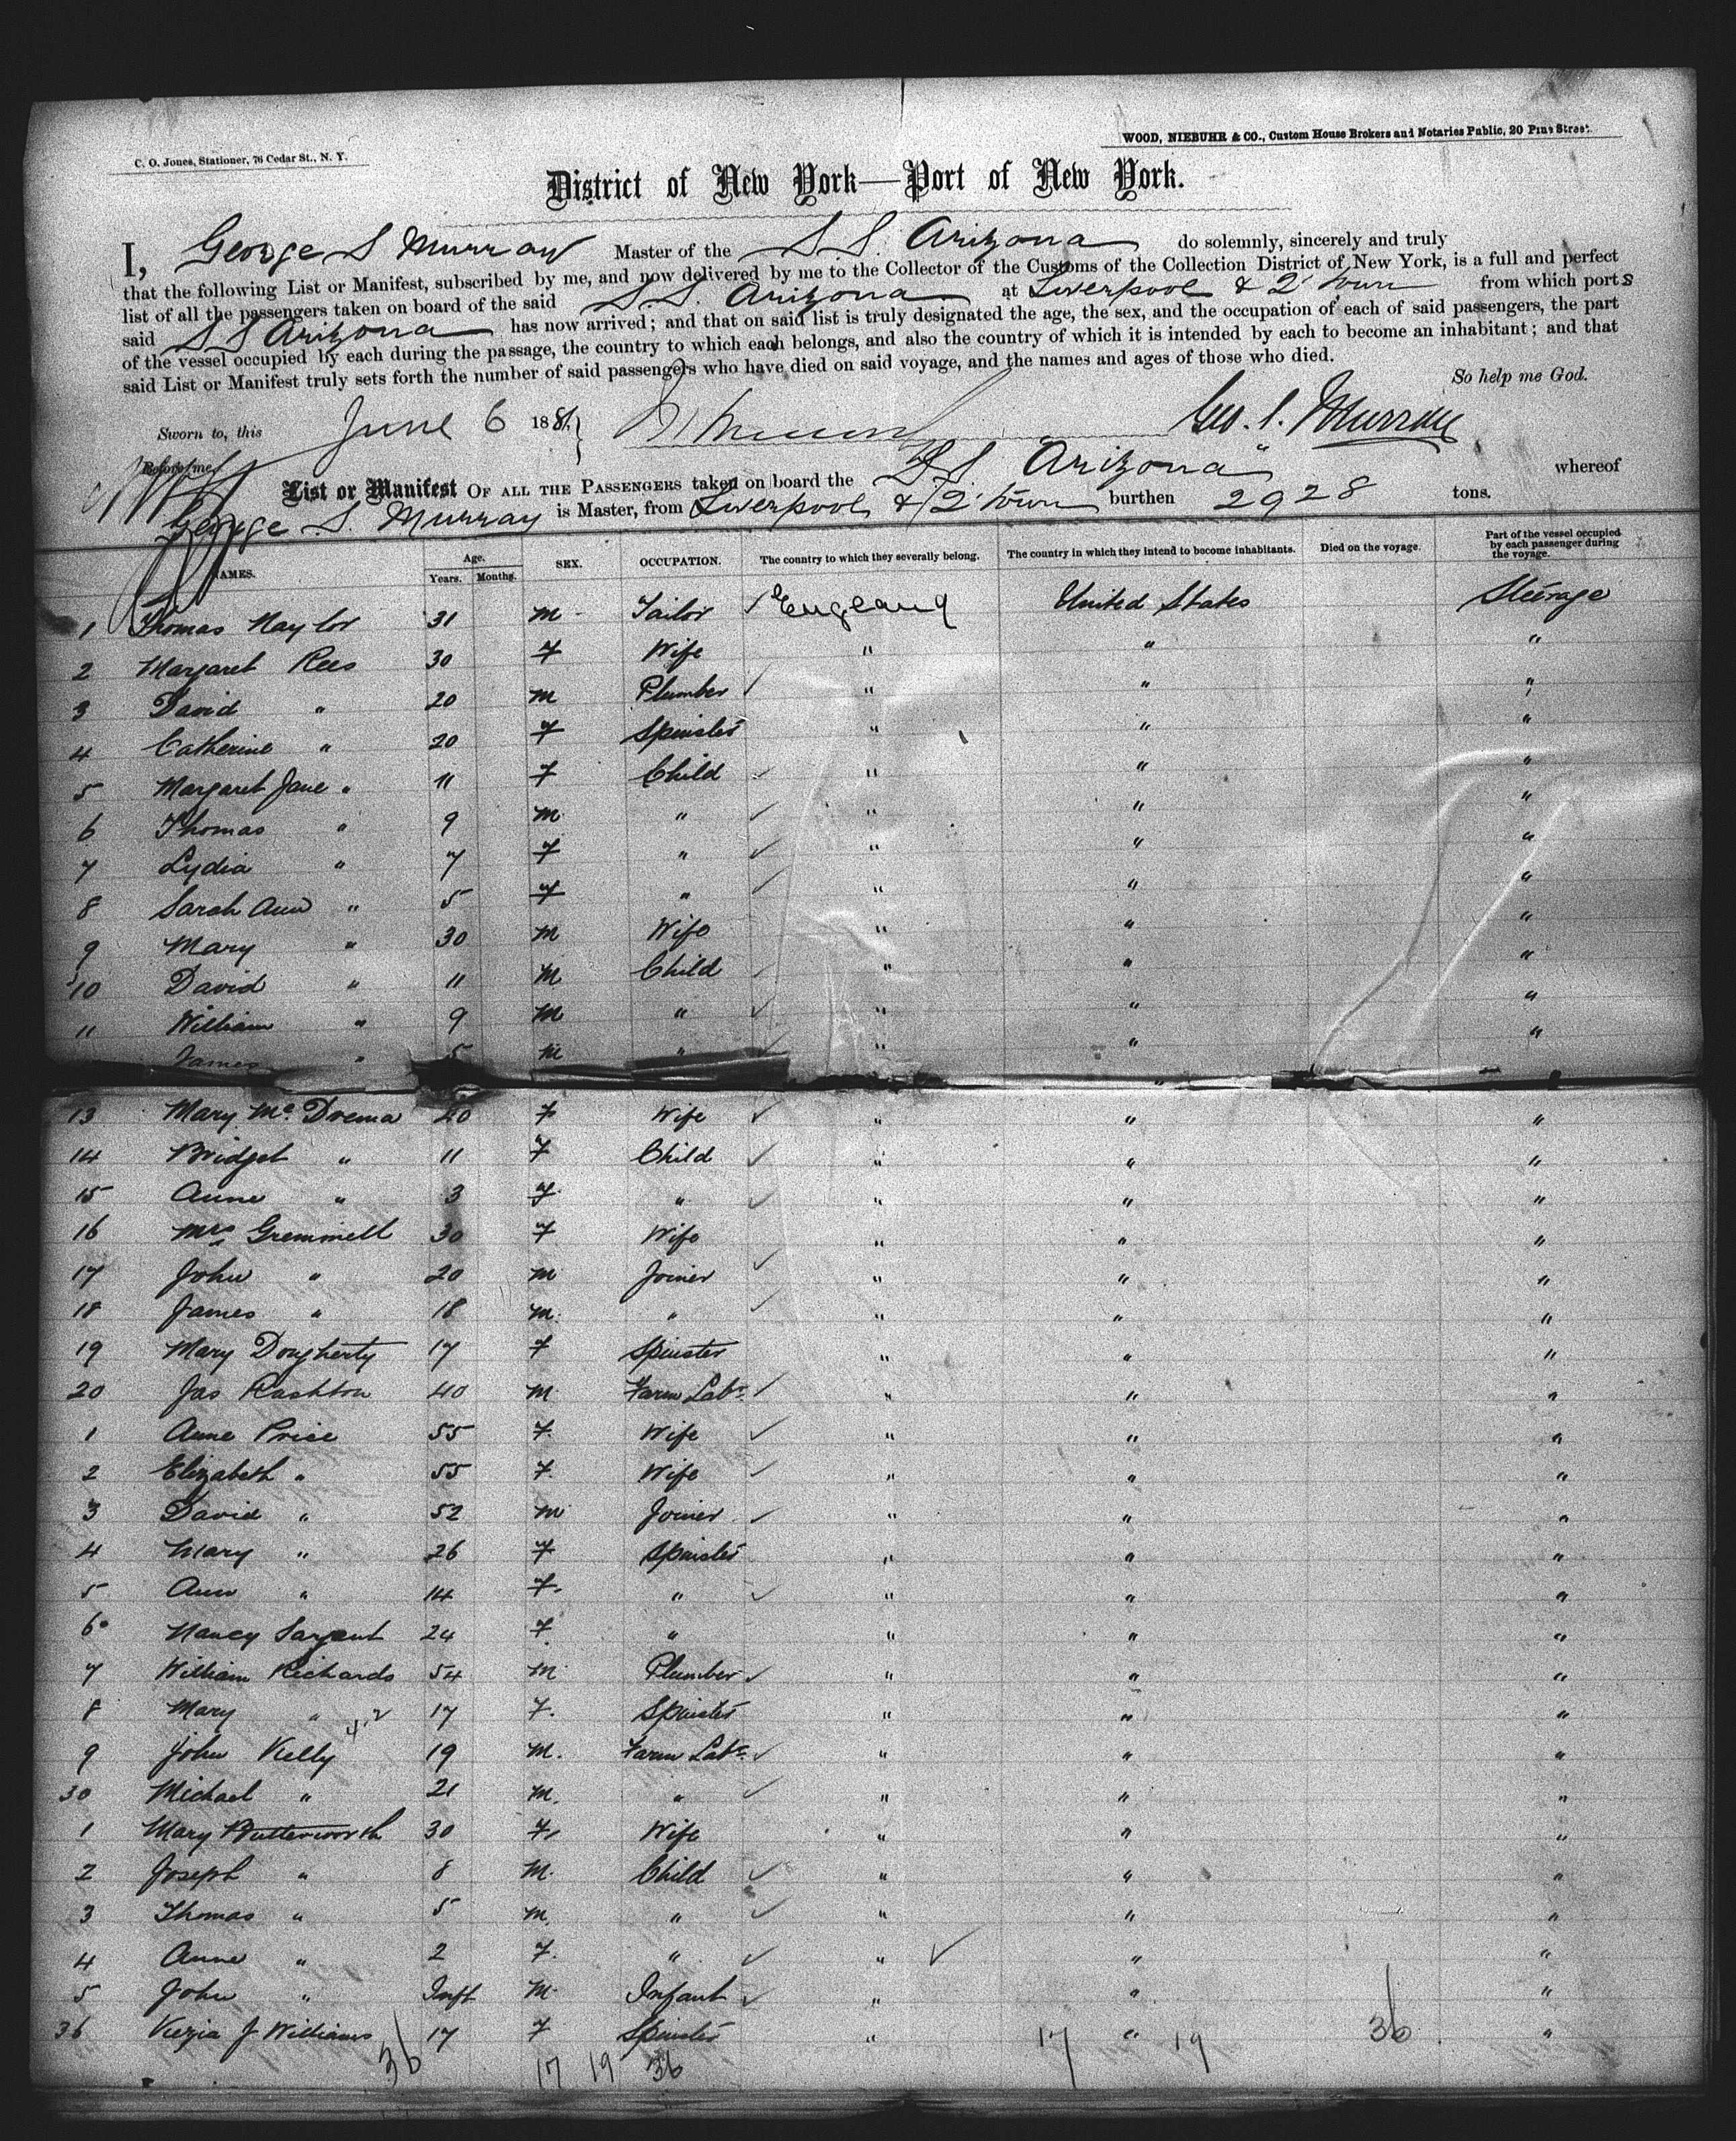 C. O. Jones, Stationer, 76 Cedar St., N. Y.
WOOD, NIEBUHR & CO., Custom House Brokers and Notaries Public, 20 Pine Street.
District of New York—Port of New York.
I, George S Murray Master of the S.S. Arizona do solemnly, sincerely and truly
that the following List or Manifest, subscribed by me, and now delivered by me to the Collector of the Customs of the Collection District of New York, is a full and perfect
list of all the passengers taken on board of the said S.S. Arizona at Liverpool & Q'town from which ports
said S S Arizona has now arrived; and that on said list is truly designated the age, the sex, and the occupation of each of said passengers, the part
of the vessel occupied by each during the passage, the country to which each belongs, and also the country of which it is intended by each to become an inhabitant; and that
said List or Manifest truly sets forth the number of said passengers who have died on said voyage, and the names and ages of those who died.
So help me God.
Sworn to, this June 6 1881. Geo. S. Murray
Before me
List or Manifest OF ALL THE PASSENGERS taken on board the S S "Arizona" whereof
George S. Murray is Master, from Liverpool & Q'town burthen 2928 tons.
NAMES. Age. Years. Months. SEX. OCCUPATION. The country to which they severally belong. The country in which they intend to become inhabitants. Died on the voyage. Part of the vessel occupied by each passenger during the voyage.
1 Thomas Naylor 31 M Tailor England United States Steerage
2 Margaret Rees 30 F Wife " " "
3 David " 20 M Plumber " " "
4 Catherine " 20 F Spinster " " "
5 Margaret Jane " 11 F Child " " "
6 Thomas " 9 M " " " "
7 Lydia " 7 F " " " "
8 Sarah Ann " 5 F " " " "
9 Mary " 30 M Wife " " "
10 David " 11 M Child " " "
11 William " 9 M " " " "
James " 5 M " " " "
13 Mary Mc Drema 40 F Wife " " "
14 Bridget " 11 F Child " " "
15 Anne " 3 F " " " "
16 Mrs Gremmell 30 F Wife " " "
17 John " 20 M Joiner " " "
18 James " 18 M. " " " "
19 Mary Dougherty 17 F Spinster " " "
20 Jas Rashton 40 M Farm Labr " " "
1 Anne Price 55 F Wife " " "
2 Elizabeth " 55 F Wife " " "
3 David " 52 M Joiner " " "
4 Mary " 26 F Spinster " " "
5 Ann " 14 F. " " " "
6 Nancy Sargent 24 F " " " "
7 William Richards 54 M Plumber " " "
8 Mary " 17 F. Spinster " " "
9 John Kelly 19 M. Farm Labr " " "
30 Michael " 21 M. " " " "
1 Mary Butterworth 30 F Wife " " "
2 Joseph " 8 M. Child " " "
3 Thomas " 5 M. " " " "
4 Anne " 2 F. " " " "
5 John " Inft M. Infant " " "
36 Kezia J Williams 17 F Spinster " " "
17 19 36
36 17 19 36